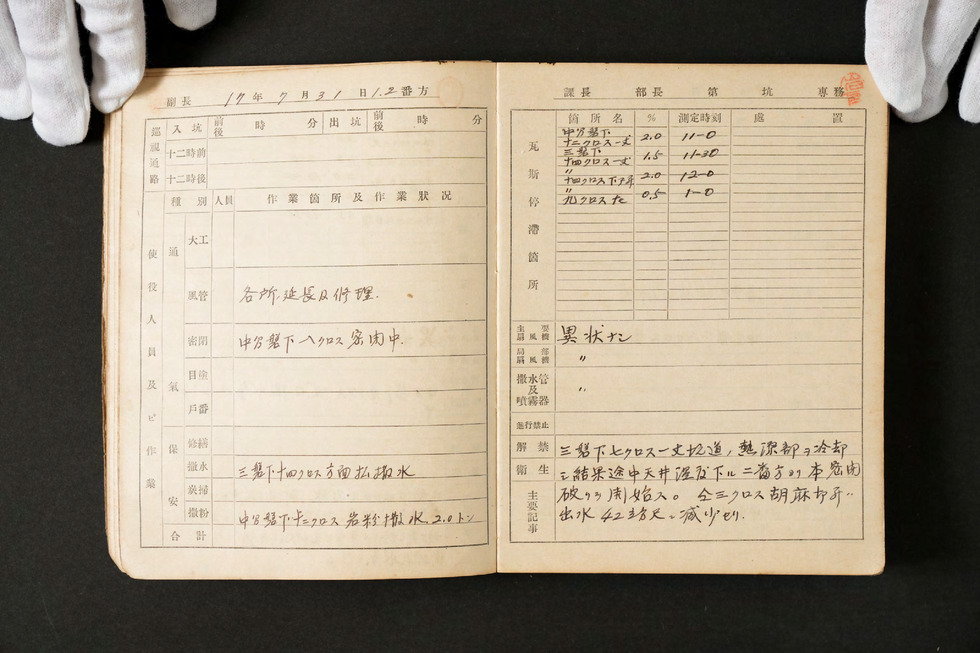 副長 17年7月31日1.2番方
巡視通路
入坑 前後 時 分 出坑 前後 時 分
十二時前
十二時後
使役人員及ビ作業
種別 人員 作業箇所及作業狀況
通氣
大工
風管 各所延長及修理.
密閉 中分盤下八クロス密閉中.
目塗
戶番
保安
修繕
撒水 三盤下十四クロス方面払撒水
炭掃
撒粉 中分盤下十二クロス岩粉撒水. 2.0トン
合計
課長 部長 第 坑 專務
瓦斯停滯箇所
箇所名 % 測定時刻 處置
中分盤下
十二クロス一丈 2.0 11-0
三盤下
十四クロス一丈 1.5 11-30
〃
十四クロス下 2.0 12-0
〃
九クロス 0.5 1-0
主要扇風機 異状ナシ
局部扇風機 〃
撒水管及噴霧器 〃
進行禁止
解禁
衛生
主要記事
三盤下七クロス一丈坑道, 熱深部ヲ冷却
結果途中天井温度下ル二番方ヨリ本密閉
破リ開始ス。 三クロス胡麻
出水 42立方尺 減少セリ.